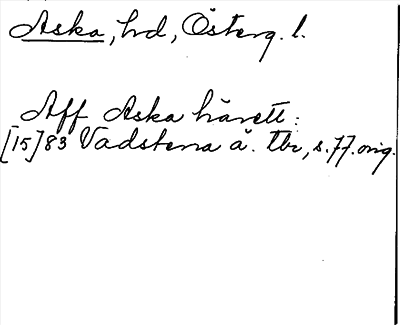 Aska, hd, Österg. l.
Aff Aska härett:
[15]83 Vadstena ä. tbr, s. 77. orig.